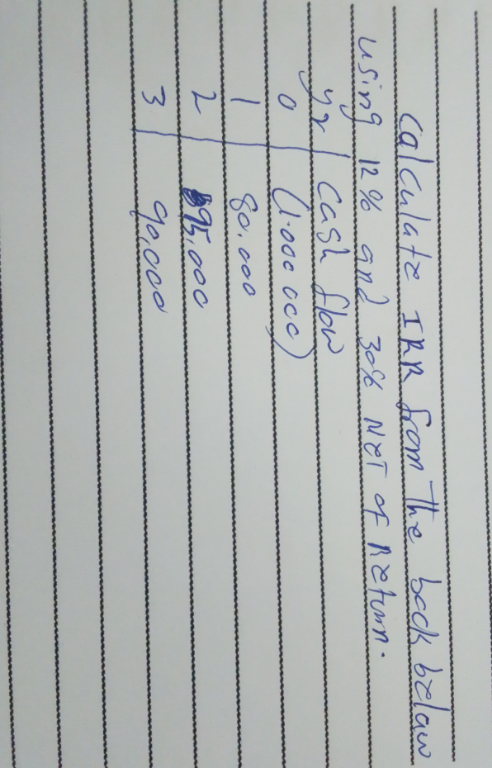 Calculate IRR from the book below
using 12% and 30% Net of Return.
yr | Cash flow
0 (1.000 000)
1 80.000
2 95,000
3 90,000